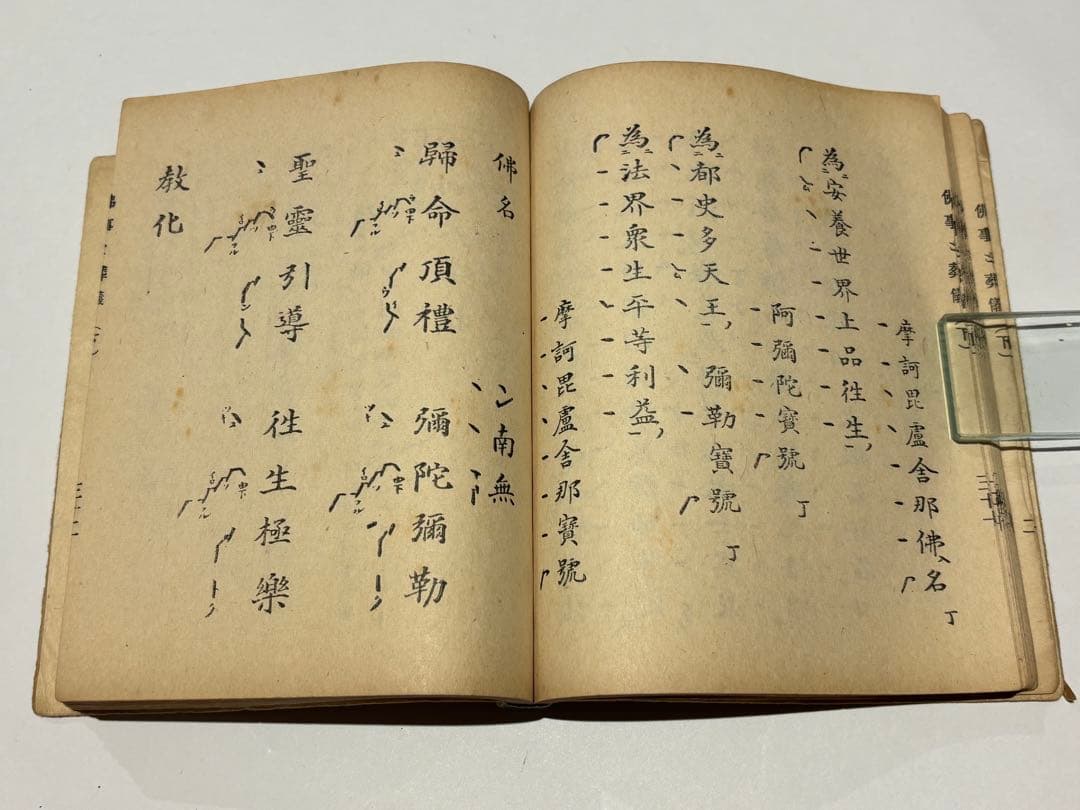 摩訶毘盧舍那佛名 丁
為安養世界上品徃生
阿彌陀寶號 丁
為都史多天王 彌勒寶號 丁
為法界衆生平等利益
摩訶毘盧舍那寶號
佛名 南無
歸命頂禮 彌陀彌勒
聖靈引導 徃生極樂
教化